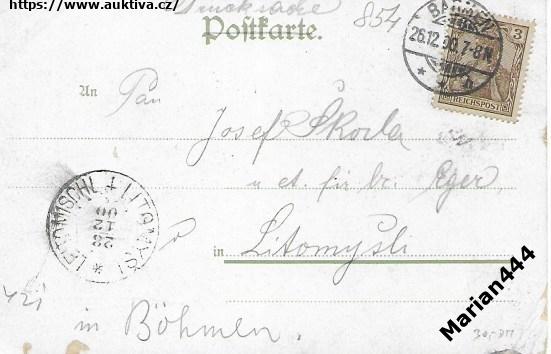 https://www.auktiva.cz/
Drucksache
854
Postkarte.
26.12.00.7-8N.
3
REICHSPOST
An
Pan
Josef Škoda
u ct. fir. br. Eger
LEITOMISCHL + LITOMYŠL
28
12
00
in Litomyšli
in Böhmen.
Marian444